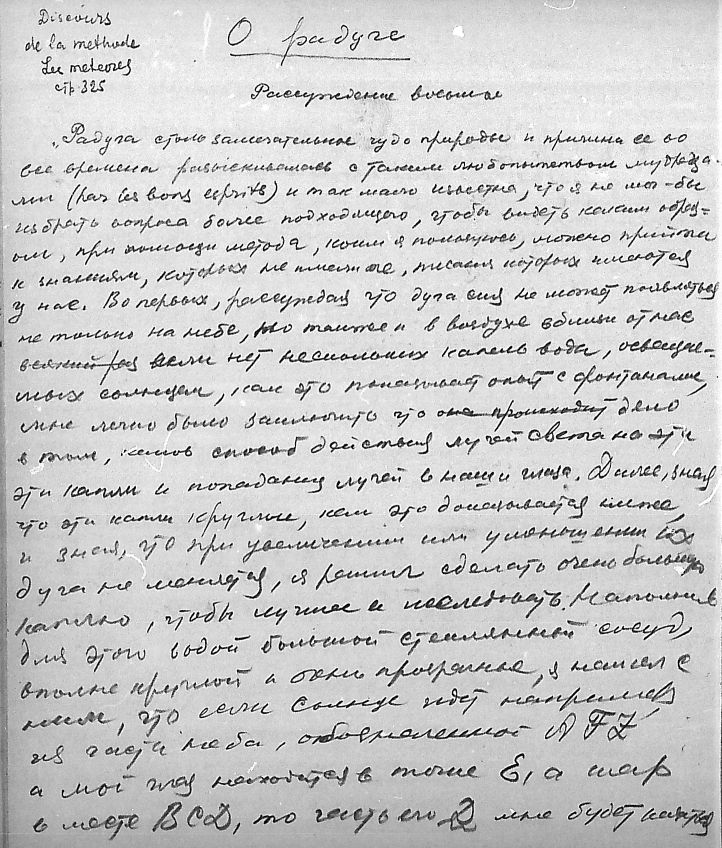 Discours
de la méthode
Les météores
стр. 325
О радуге
Рассуждение восьмое
„Радуга столь замечательное чудо природы и причина ее во
все времена разыскивалась с таким любопытством мудреца-
ми (par les bons esprits) и так мало известна, что я не мог-бы
избрать вопроса более подходящего, чтобы видеть каким образ-
ом, при помощи метода, коим я пользуюсь, можно прийти
к знаниям, которых не имели те, писания которых имеются
у нас. Во первых, рассуждая что дуга сия не может появляться
не только на небе, но также и в воздухе вблизи от нас
всякий раз если нет нескольких капель воды, освещае-
мых солнцем, как это показывает опыт с фонтанами,
мне легко было заключить что она происходит дело
в том, каков способ действия лучей света на эти
эти капли и попадания лучей в наши глаза. Далее, зная
что эти капли круглые, как это доказывается ниже,
и зная, что при увеличении или уменьшении их
дуга не меняется, я решил сделать очень большую
каплю, чтобы лучше ее исследовать. Наполнив
для этого водой большой стеклянный сосуд,
вполне круглой и очень прозрачное, я нашел с
ним, что если солнце идёт например
из части неба, обозначенной AFZ,
а мой глаз находится в точке E, а шар
в месте BCD, то часть его D мне будет казаться